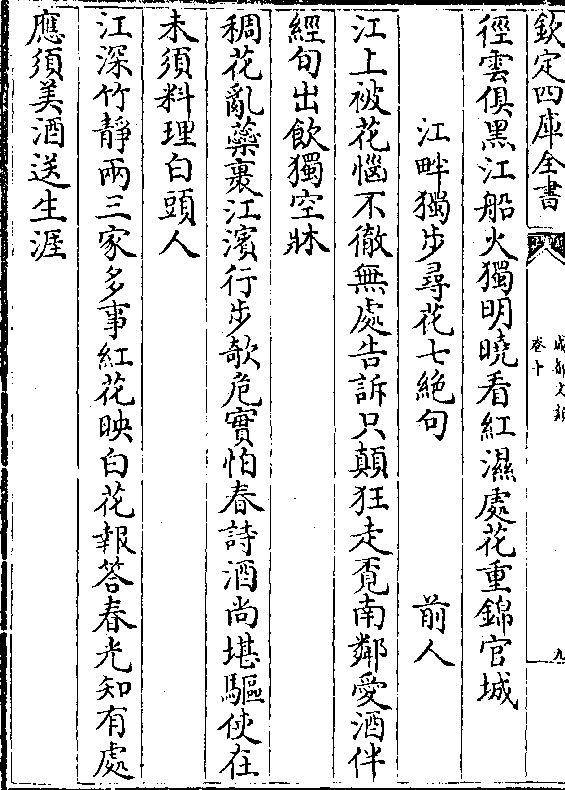 欽定四庫全書
成都文類
卷十
九
徑雲俱黑江船火獨明曉看紅濕處花重錦官城
江畔獨步尋花七絶句 前人
江上被花惱不徹無處告訴只顛狂走覓南鄰愛酒伴
經旬出飲獨空牀
稠花亂蘂裹江濱行步欹危實怕春詩酒尚堪驅使在
未須料理白頭人
江深竹靜兩三家多事紅花映白花報答春光知有處
應須美酒送生涯